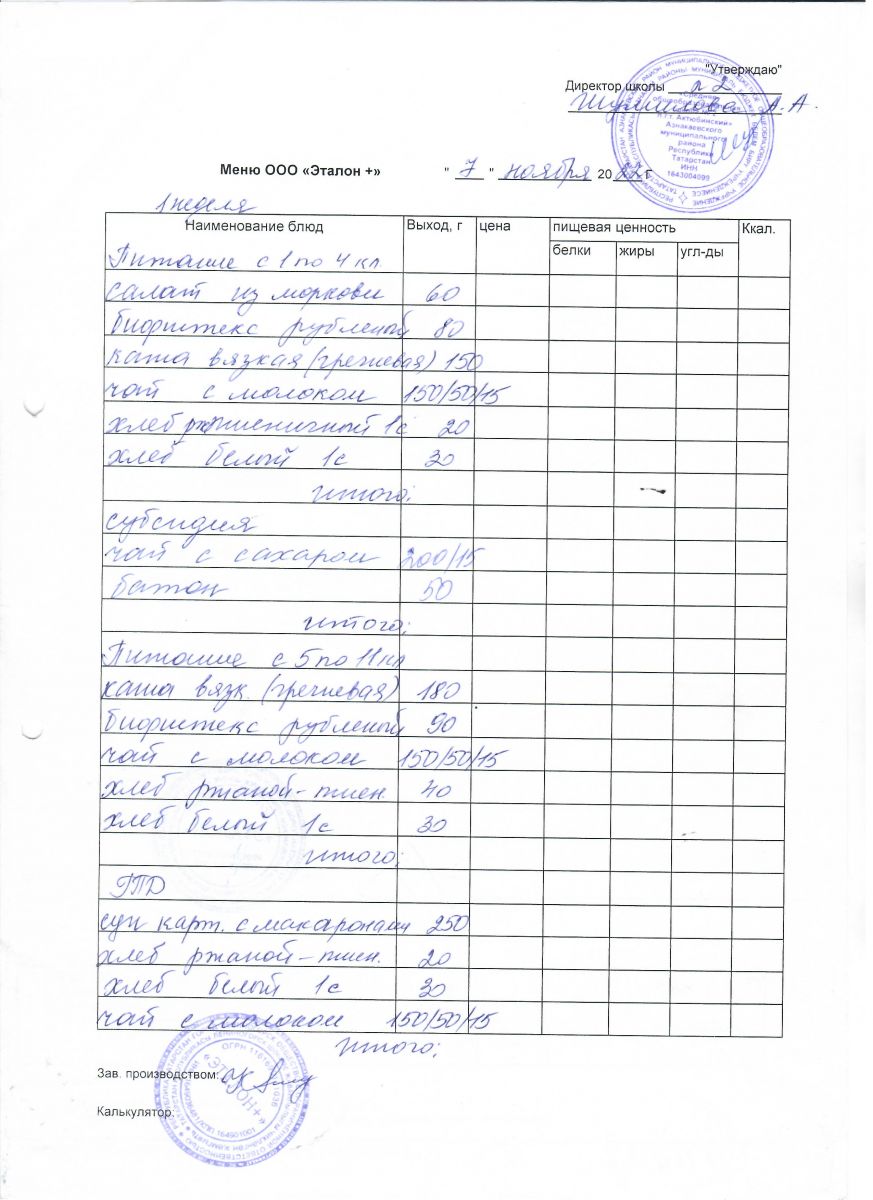 "Утверждаю"
Директор школы №2
А.А.
"Средняя
общеобразовательная
п.г.т. Актюбинский»
Азнакаевского
муниципального
района
Республики
Татарстан
ИНН
1643004099
Меню ООО «Эталон +» " 7 " ноября 2022 г
1 неделя
Наименование блюд Выход, г цена пищевая ценность Ккал.
белки жиры угл-ды
Питание с 1 по 4 кл.
салат из моркови 60
бифштекс рубленой 80
каша вязкая (гречневая) 150
чай с молоком 150/50/15
хлеб пшеничный 1с 20
хлеб белый 1с 30
итого:
субсидия
чай с сахаром 200/15
батон 50
итого:
Питание с 5 по 11 кл
каша вязк. (гречневая) 180
бифштекс рубленой 90
чай с молоком 150/50/15
хлеб ржаной-пшен. 40
хлеб белый 1с 30
итого:
ГПД
суп карт. с макаронами 250
хлеб ржаной-пшен. 20
хлеб белый 1с 30
чай с молоком 150/50/15
итого:
Зав. производством:
«ЭТАЛОН+»
Калькулятор: